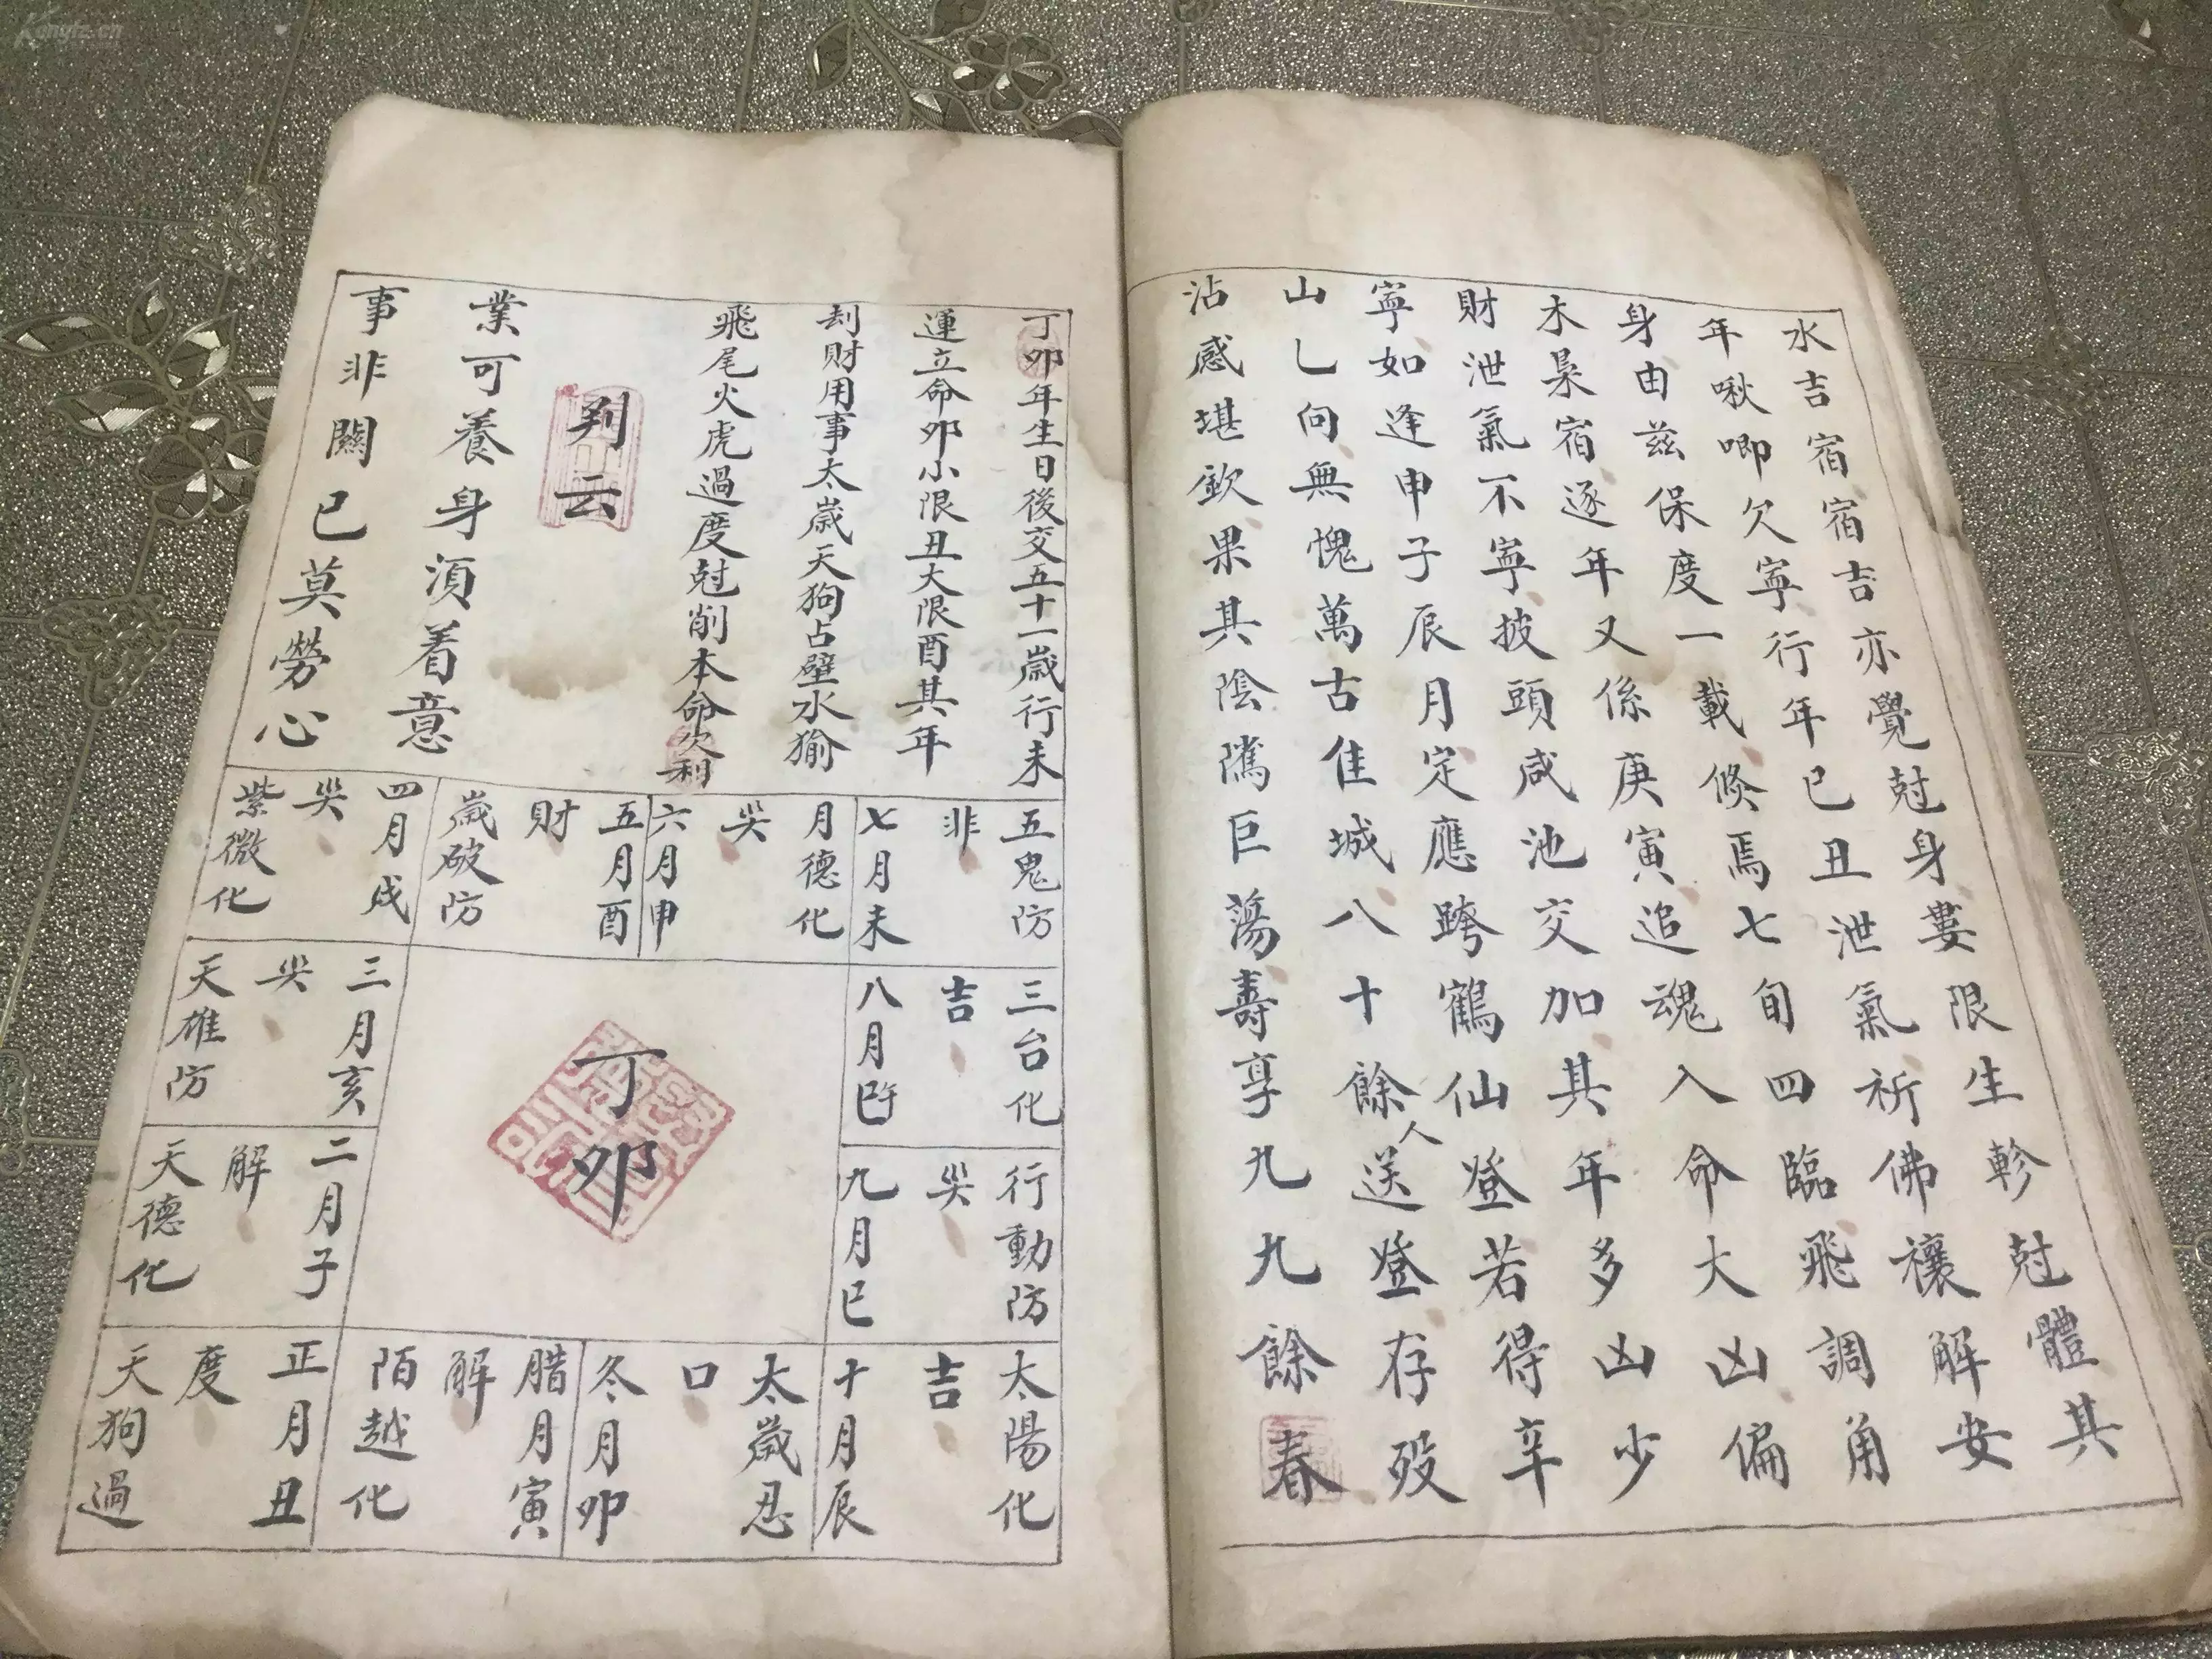 水吉宿宿吉亦覺尅身婁限生軫尅體其
年啾唧欠寧行年已丑泄氣祈佛禳解安
身由兹保度一載倐焉七旬四臨飛調角
木梟宿逐年又係庚寅追魂入命大凶偏
財泄氣不寧披頭咸池交加其年多凶少
寧如逢申子辰月定應跨鶴仙登若得辛
山乚向無愧萬古佳城八十餘人送登存殁
沾感堪欽果其陰隲巨蕩壽享九九餘春
丁卯年生日後交五十一歲行未
運立命卯小限丑大限酉其年
刦財用事太歲天狗占壁水㺄
飛尾火虎過度尅削本命欠利
判云
業可養身須着意
事非關已莫勞心
五鬼防
非
七月未
月德化
哭
六月申
五月酉
財
歲破防
四月戌
哭
紫微化
三台化
吉
八月午
三月亥
哭
天雄防
丁卯
行動防
哭
九月巳
二月子
解
天德化
太陽化
吉
十月辰
太歲忍
口
冬月卯
腊月寅
解
陌越化
正月丑
度
天狗過
Kongfz.cn